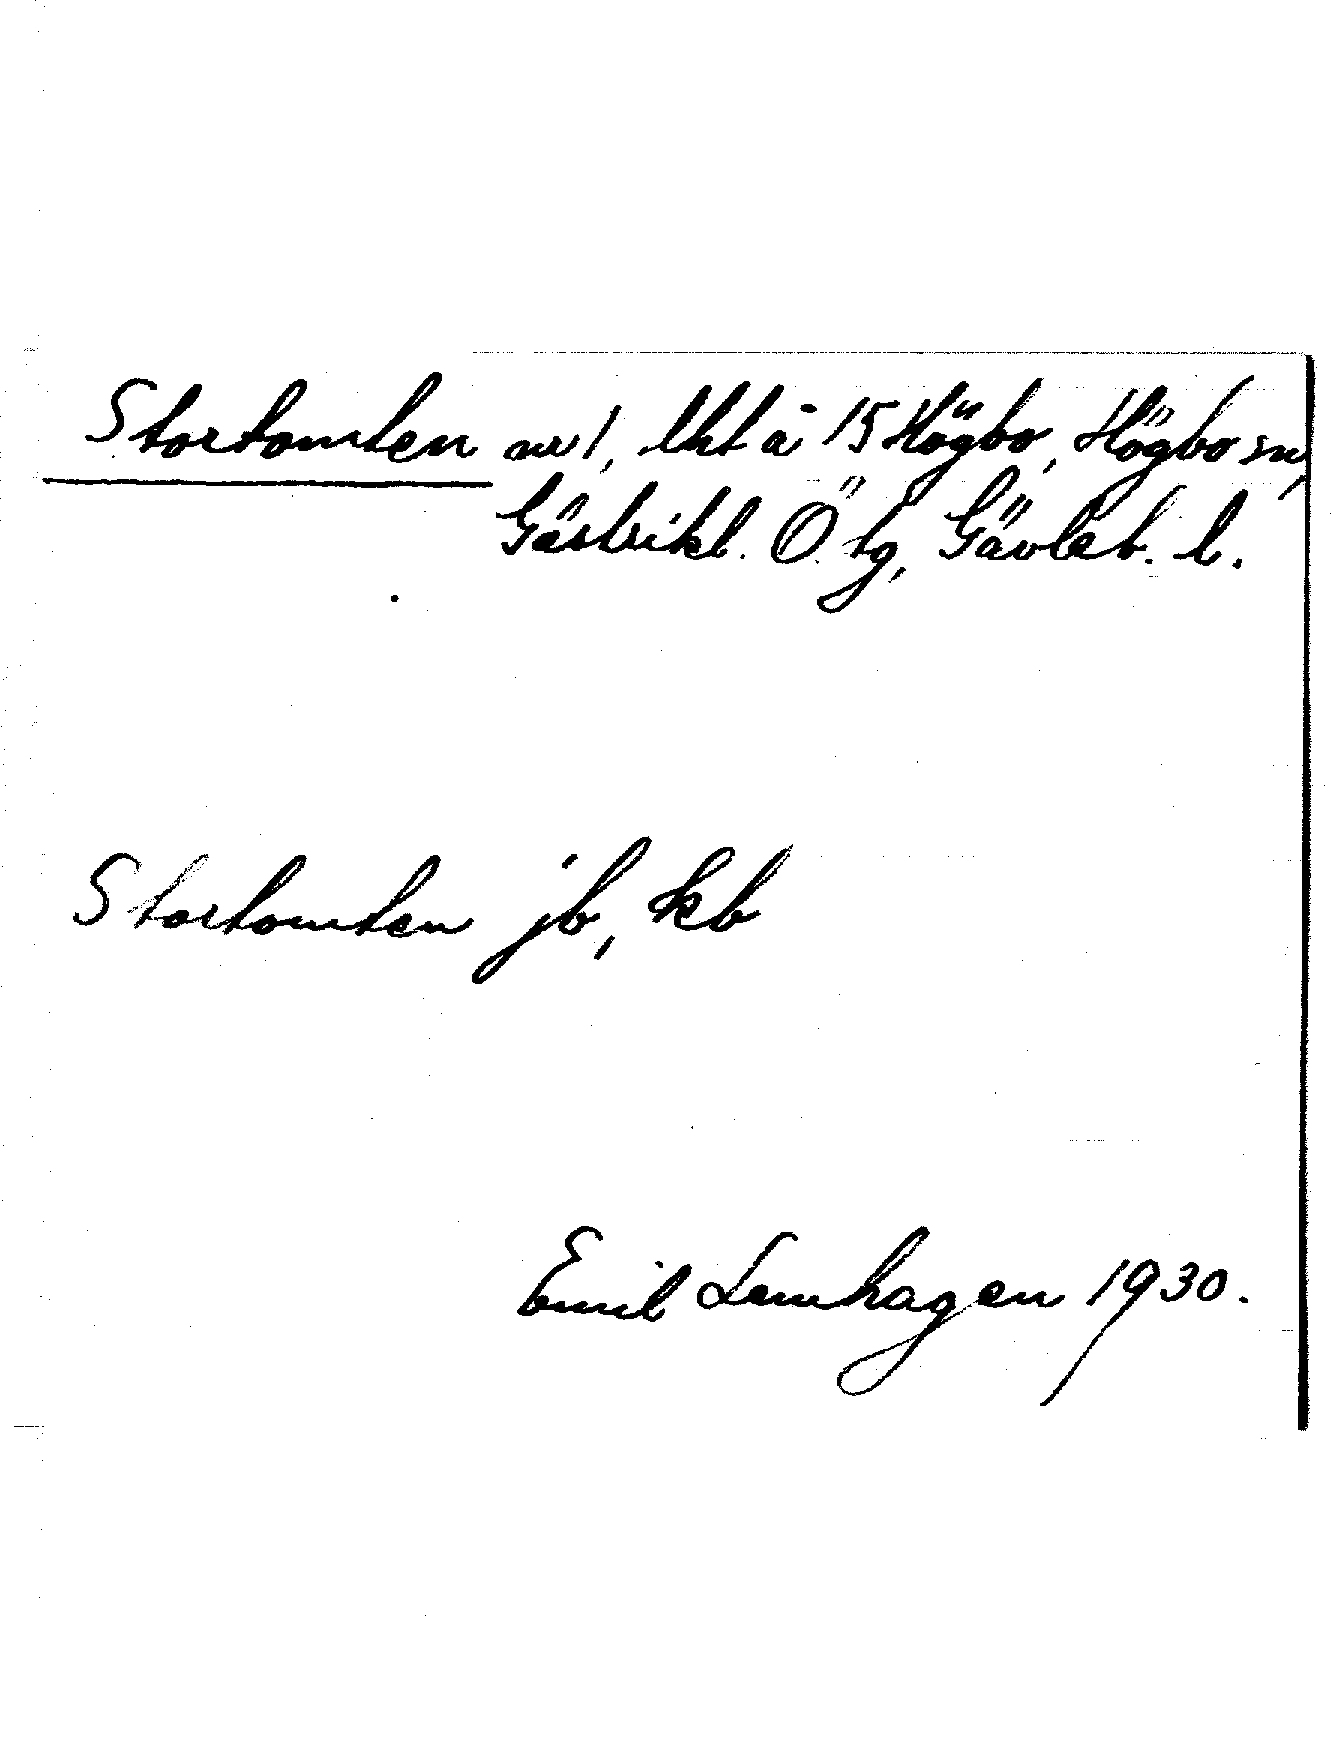 Stortomten nr 1, lht å 15 Högbo, Högbo sn,
Gästrikl. Ö tg, Gävleb. l.
Stortomten jb, kb
Emil Lennhagen 1930.